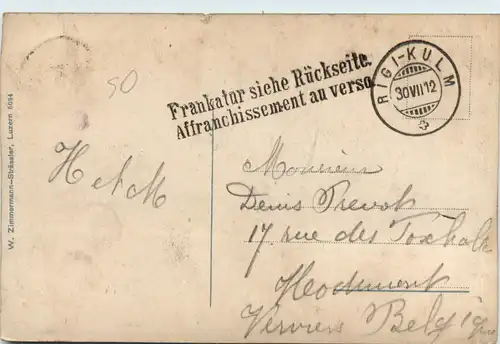 50
Frankatur siehe Rückseite.
Affranchissement au verso.
RIGI-KULM
30VII12
W. Zimmermann-Strässler, Luzern 5094
H et M
Monsieur
Denis Prevot
17 rue des
Hodimont
Verviers Belgique